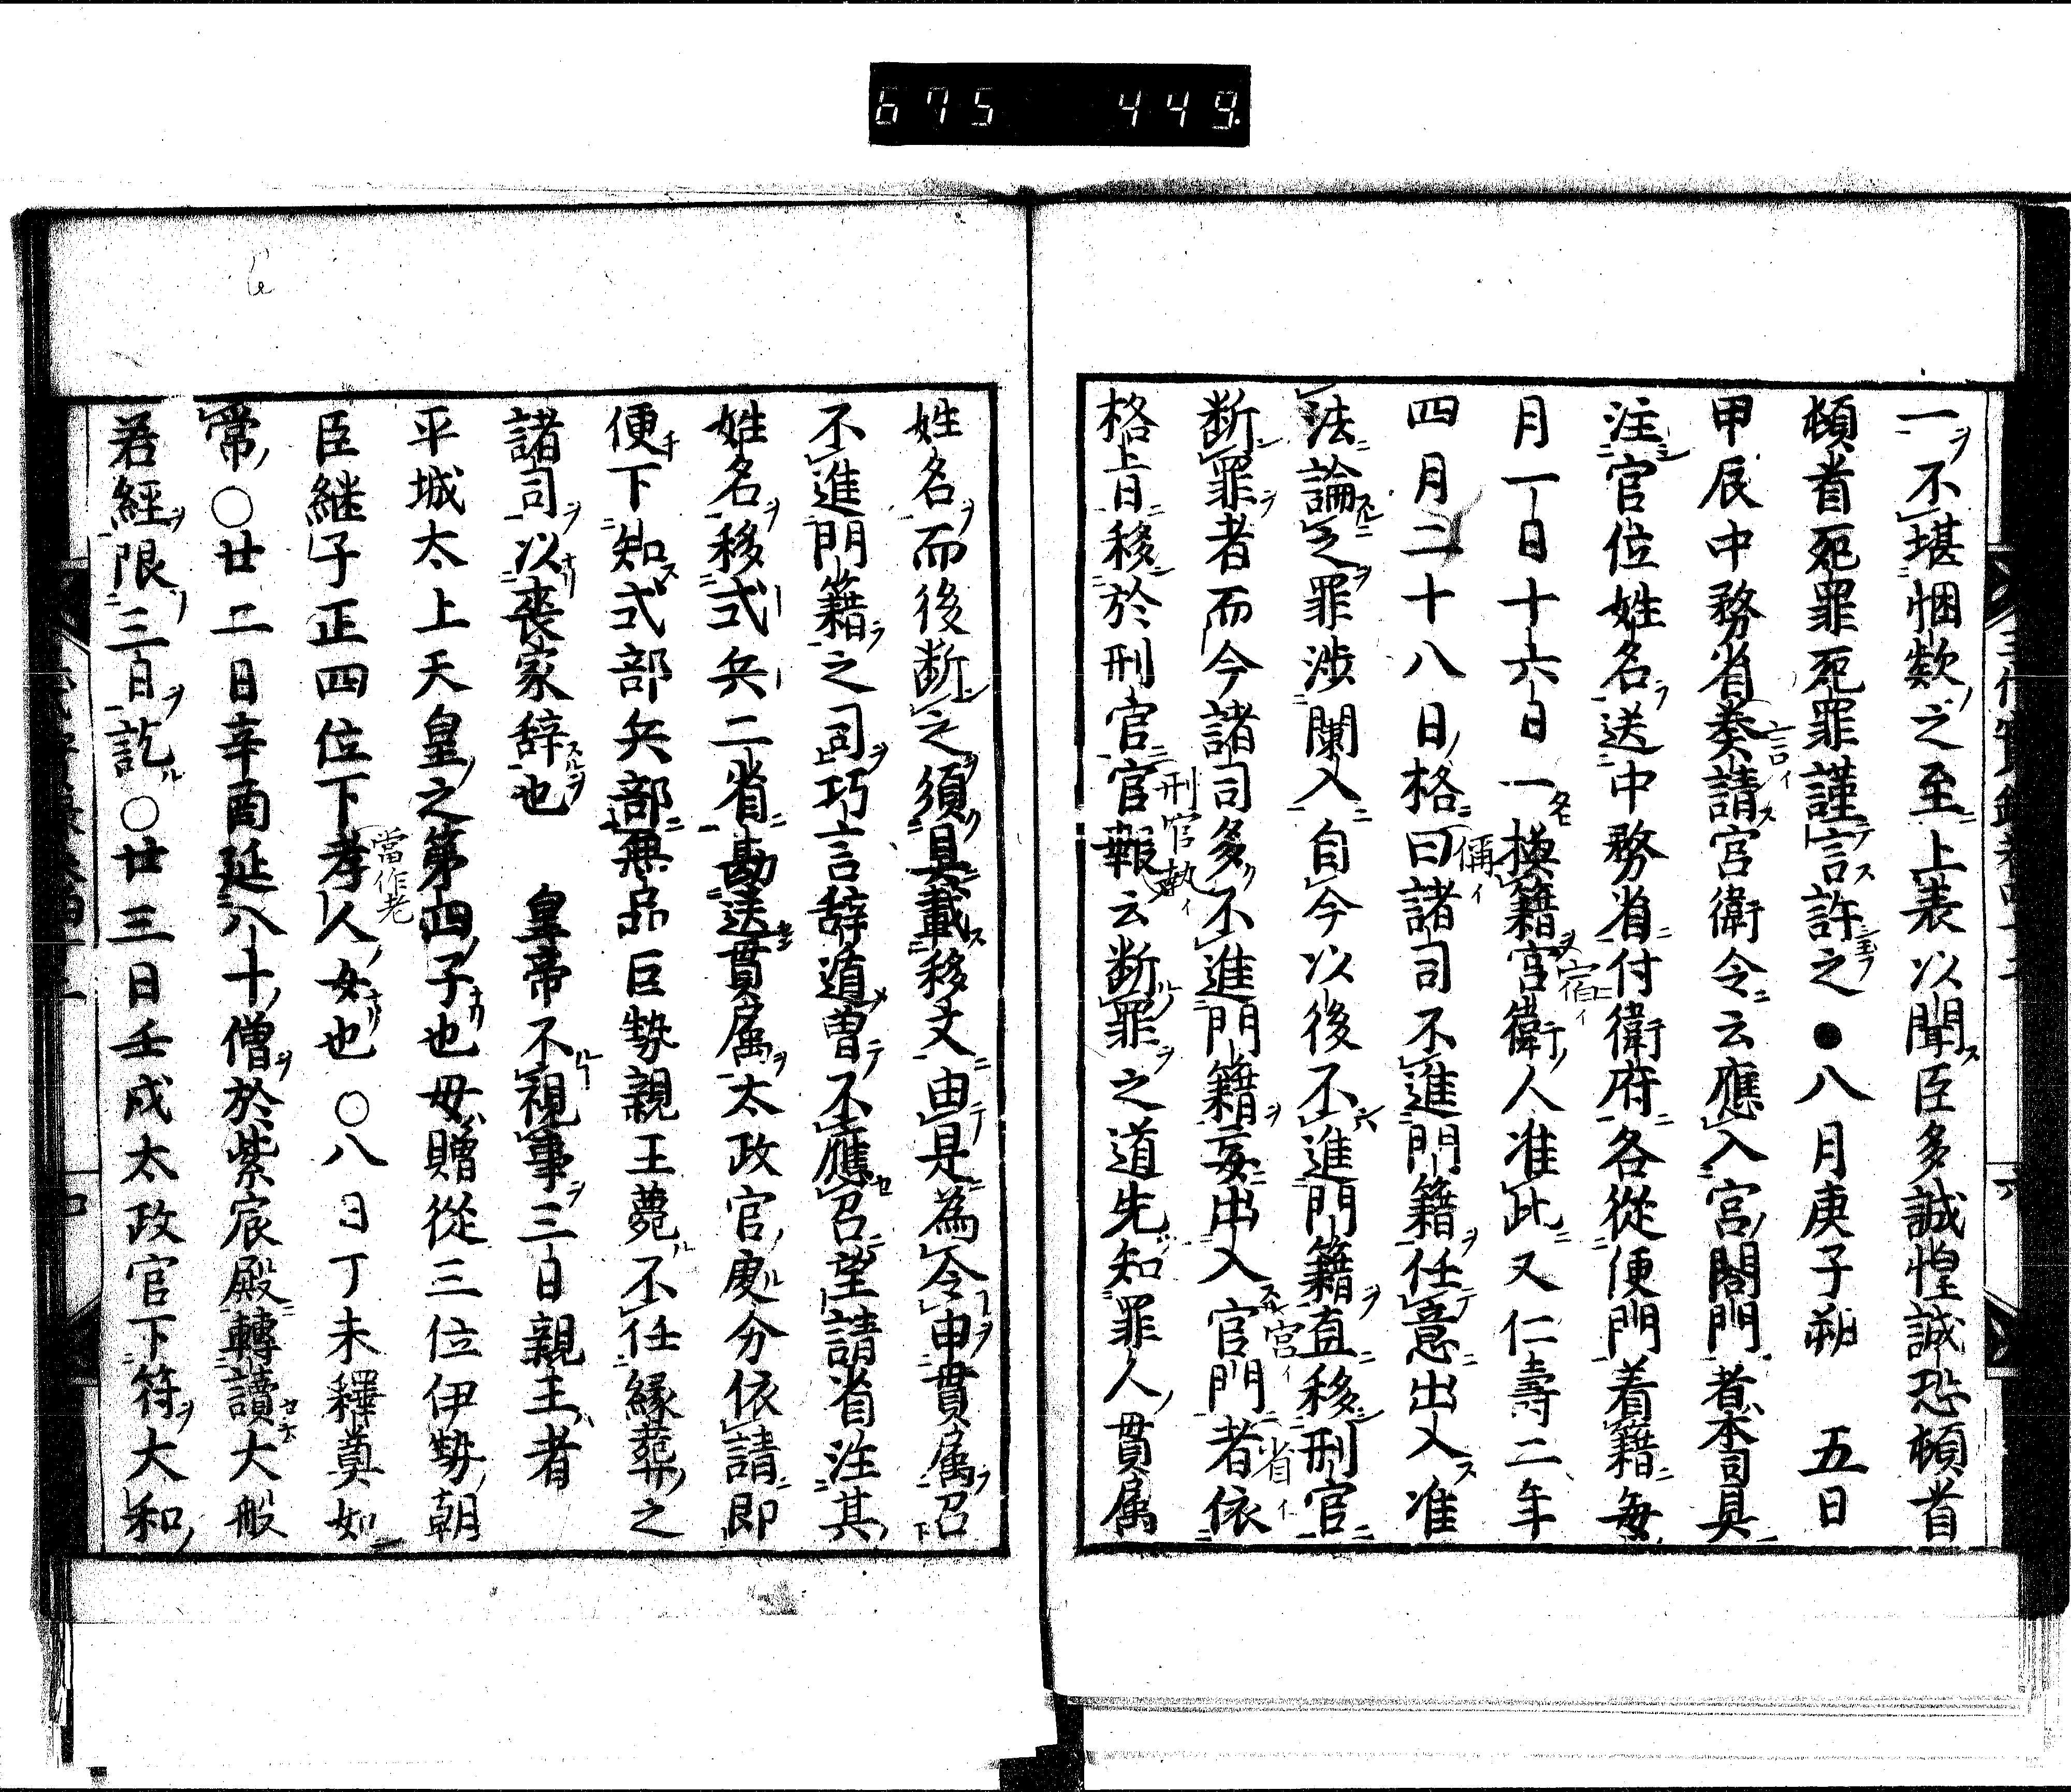 675 449.
一不堪悃欵之至上表以聞臣多誠惶誠恐頓首
頓首死罪死罪謹言許之●八月庚子朔五日
甲辰中務省奏請宮衛令云應入宮閤門者本司具
注官位姓名送中務省付衛府各從便門着籍毎
月一日十六日一換籍宮衛人准此又仁壽二年
四月二十八日格曰諸司不進門籍任意出入准
法論之罪渉闌入自今以後不進門籍直移刑官
断罪者而今諸司多不進門籍妄出入官門者依
格旨移於刑官官報云断罪之道先知罪人貫属
姓名而後断之須具載移文由是為令申貫属召
不進門籍之司巧言辞遁曽不應召望請省注其
姓名移式兵二省勘送貫属太政官處分依請即
便下知式部兵部無品巨勢親王薨不任縁葬之
諸司以喪家辞也 皇帝不視事三日親王者
平城太上天皇之第四子也母贈從三位伊勢朝
臣継子正四位下孝人女也○八日丁未釋奠如
常○廿二日辛酉延八十僧於紫宸殿轉讀大般
若經限三日訖○廿三日壬戌太政官下符大和
言イ
名
偁イ
宿イ
刑官執イ
宮イ
省イ
當作老